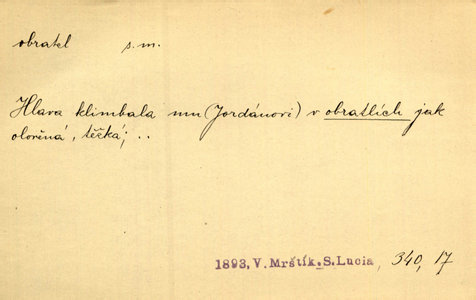 obratel s. m.
Hlava klimbala mu (Jordánovi) v obratlích jak
olověná, těžká; ..
1893, V. Mrštík. S. Lucia, 340, 17